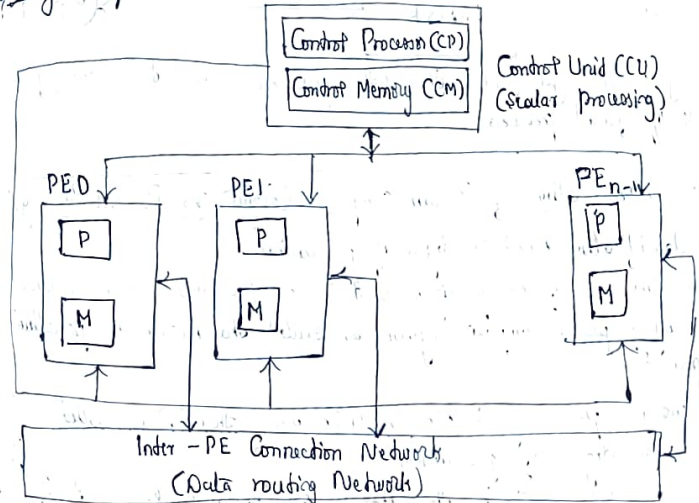 Control Processor (CP)
Control Memory (CM)
Control Unid (CU)
(Scalar processing)
PE0
PE1
PEn-1
P
P
P
M
M
M
Inter-PE Connection Network
(Data routing Network)